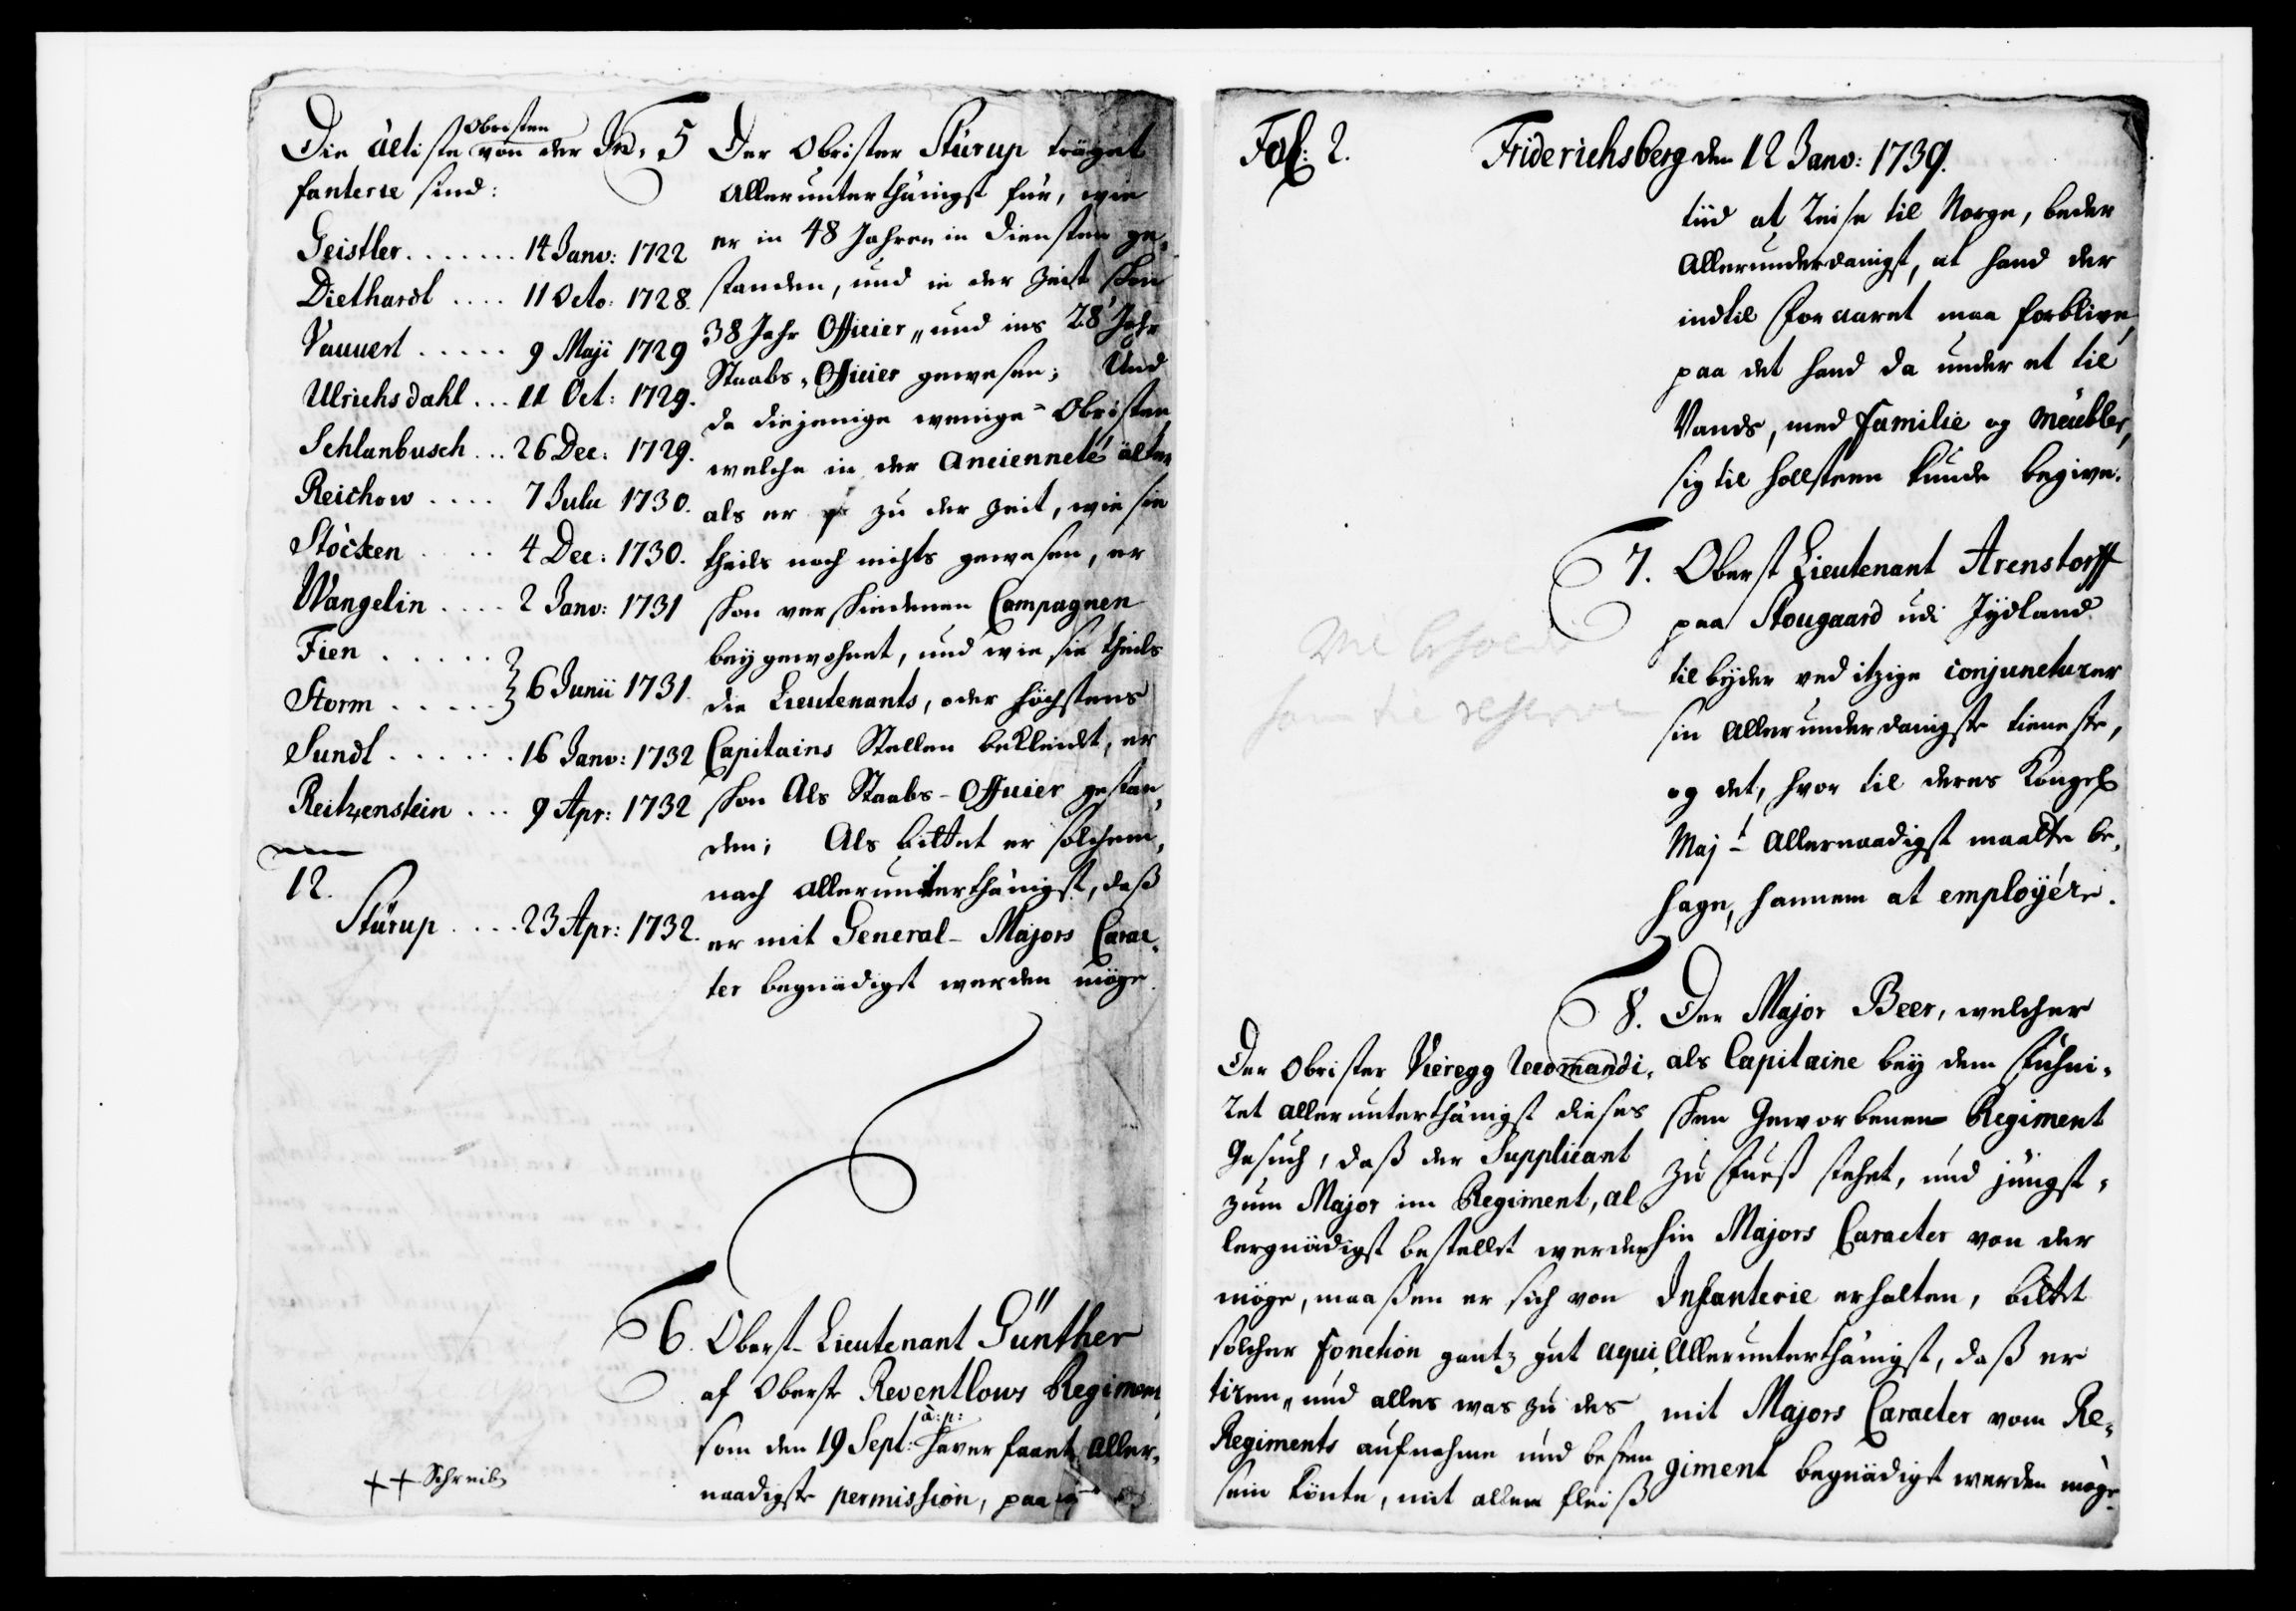 Die älteste Obristen von der In-
fanterie sind:
Geistler ....... 14 Janv: 1722
Diethardt .... 11 Octo: 1728.
Vauvert ..... 9 Maji 1729
Ulrichsdahl ... 11 Oct: 1729.
Schlanbusch ... 26 Dec: 1729.
Reichow .... 7 Julu 1730.
Stöcken .... 4 Dec: 1730.
Wangelin .... 2 Janv: 1731
Fien .....
Storm ..... } 6 Junii 1731.
Sundt ...... 16 Janv: 1732
Reitzenstein ... 9 Apr: 1732
12.
Stürup .... 23 Apr: 1732.
++ Schreib
5 Der Obrister Stürup träget
allerunterthänigst für, wie
er in 48 Jahren in Diensten ge-
standen, und in der Zeit schon
38 Jahr Officier, und ins 28 Jahr
Staabs-Officier gewesen; Und
da diejenige wenige Obristen
welche in der Ancienneté älter
als er zu der Zeit, wie sie
theils noch nichts gewesen, er
schon verschiedenen Campagnen
beygewohnet, und wie sie theils
die Lieutenants, oder höchstens
Capitains Stellen bekleidt, er
schon Als Staabs-Officier gestan-
den; Als bittet er solchem-
nach allerunterthänigst, daß
er mit General-Majors Carac-
ter begnädigt werden möge.
6. Oberst-Lieutenant Günther
af Oberste Reventlows Regiment
som den 19 Sept: a: p: haver faaet Aller-
naadigste permission, paa
Fol: 2. Friderichsberg den 12 Janv: 1739.
tiid at Reise til Norge, beder
Allerunderdanigst, at hand der
indtil Foraaret maa forblive,
paa det hand da under et til
Vands, med Familie og Meubler,
sig til Hollsteen kunde begive.
7. Oberst Lieutenant Arenstorff
paa Stougaard udi Jydland
tilbyder ved itzige conjuncturer
sin Allerunderdanigste tieneste,
og det, hvor til deres Kongel
Majt Allernaadigst maatte be-
hage, hannem at employére.
8. Der Major Beer, welcher
als Capitaine bey dem Fühni-
schen Geworbenen Regiment
zu Fueß stehet, und jüngst-
hin Majors Caracter von der
Infanterie erhalten, bittet
Allerunterthänigst, daß er
mit Majors Caracter vom Re-
giment begnädigt werden möge.
Der Obrister Vieregg recomandi-
ret allerunterthänigst dieses
Gesuch, daß der Supplicant
zum Major im Regiment, al
lergnädigst bestellet werden
möge, maaßen er sich von
solcher Fonction gantz gut aqui-
tiren, und alles was zu des
Regiments aufnahme und besten
sein könte, mit allem fleiß